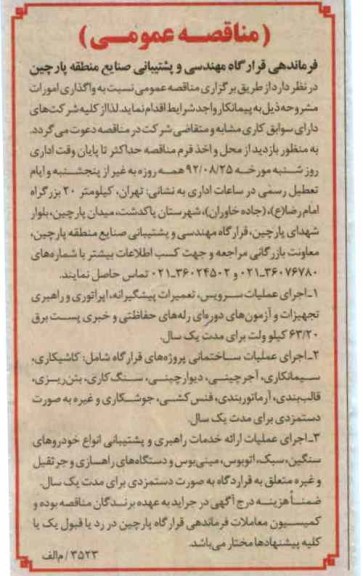 (مناقصه عمومی)
فرماندهی قرارگاه مهندسی و پشتیبانی صنایع منطقه پارچین
در نظر دارد از طریق برگزاری مناقصه عمومی نسبت به واگذاری امورات
مشروحه ذیل به پیمانکار واجد شرایط اقدام نماید. لذا از کلیه شرکت‌های
دارای سوابق کاری مشابه و متقاضی شرکت در مناقصه دعوت می گردد.
به منظور بازدید از محل و اخذ فرم مناقصه حداکثر تا پایان وقت اداری
روز شنبه مورخه ۹۲/۰۸/۲۵ همه روزه به غیر از پنجشنبه و ایام
تعطیل رسمی در ساعات اداری به نشانی: تهران، کیلومتر ۲۰ بزرگراه
امام رضا(ع)، (جاده خاوران)، شهرستان پاکدشت، میدان پارچین، بلوار
شهدای پارچین، قرارگاه مهندسی و پشتیبانی صنایع منطقه پارچین،
معاونت بازرگانی مراجعه و جهت کسب اطلاعات بیشتر با شماره‌های
۰۲۱-۳۶۰۷۶۷۸۰ و ۰۲۱-۳۶۰۲۴۵۰۲ تماس حاصل نمایند.
۱-اجرای عملیات سرویس، تعمیرات پیشگیرانه، اپراتوری و راهبری
تجهیزات و آزمون‌های دوره‌ای رله‌های حفاظتی و خبری پست برق
۶۳/۲۰ کیلو ولت برای مدت یک سال.
۲-اجرای عملیات ساختمانی پروژه‌های قرارگاه شامل: کاشیکاری،
سیمانکاری، آجرچینی، دیوارچینی، سنگ کاری، بتن‌ریزی،
قالب‌بندی، آرماتوربندی، فنس کشی، جوشکاری و غیره به صورت
دستمزدی برای مدت یک سال.
۳-اجرای عملیات ارائه خدمات راهبری و پشتیبانی انواع خودروهای
سنگین، سبک، اتوبوس، مینی‌بوس و دستگاه‌های راهسازی و جرثقیل
و غیره متعلق به قراردگاه به صورت دستمزدی برای مدت یک سال.
ضمناً هزینه درج آگهی در جراید به عهده برندگان مناقصه بوده و
کمیسیون معاملات فرماندهی قرارگاه پارچین در رد یا قبول یک یا
کلیه پیشنهادها مختار می‌باشد.
۳۵۲۳/م‌الف